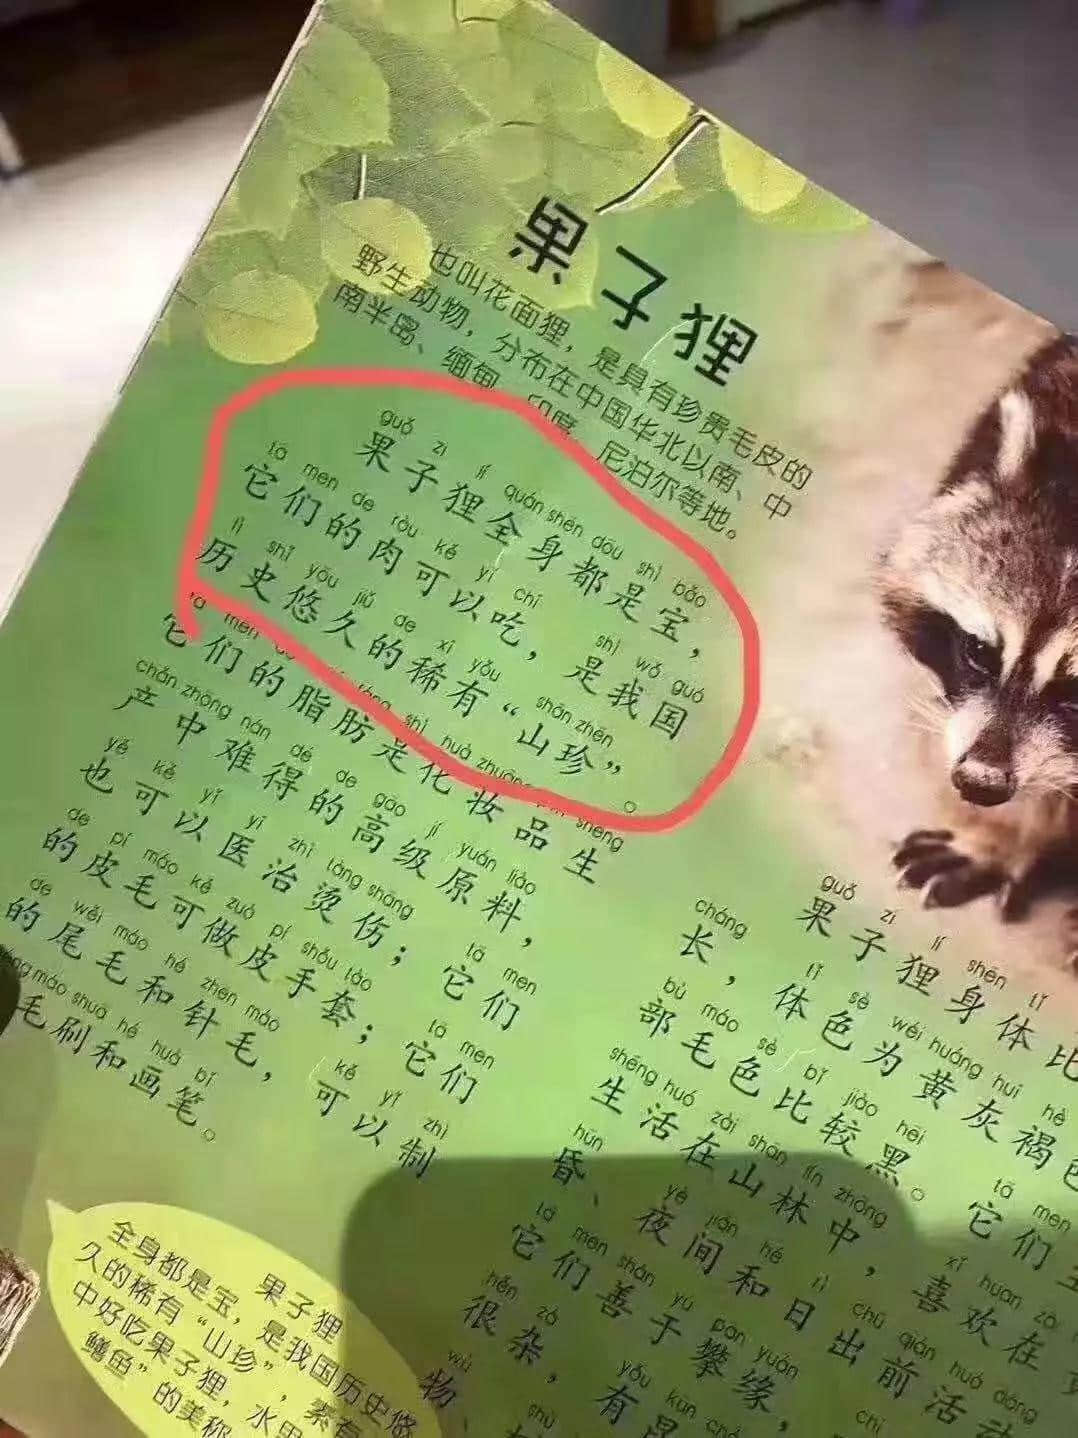 果子狸
也叫花面狸，是具有珍贵毛皮的
野生动物，分布在中国华北以南、中
南半岛、缅甸、印度、尼泊尔等地。
guǒ zi lí quán shēn dōu shì bǎo
果子狸全身都是宝，
tā men de ròu kě yǐ chī shì wǒ guó
它们的肉可以吃，是我国
lì shǐ yōu jiǔ de xī yǒu shān zhēn
历史悠久的稀有“山珍”。
它们的脂肪是化妆品生
chǎn zhōng nán dé de gāo jí yuán liào
产中难得的高级原料，
yě kě yǐ yī zhì tàng shāng tā men
也可以医治烫伤；它们
de pí máo kě zuò pí shǒu tào tā men
的皮毛可做皮手套；它们
de wěi máo hé zhēn máo kě yǐ zhì
的尾毛和针毛，可以制
毛刷和画笔。
guǒ zi lí shēn tǐ
果子狸身体比
cháng tǐ sè wéi huáng huī hè
长，体色为黄灰褐色
bù máo sè bǐ jiào hēi tā men
部毛色比较黑。它们
shēng huó zài shān lín zhōng xǐ huan
生活在山林中，喜欢在
hūn yè jiān hé rì chū qián huó dòng
昏、夜间和日出前活动
tā men shàn yú pān yuán
它们善于攀缘，
hěn zá yǒu
很杂，有
物、
果子狸
全身都是宝，是我国历史悠
久的稀有“山珍”，素有
中好吃果子狸，水里
鳝鱼”的美称